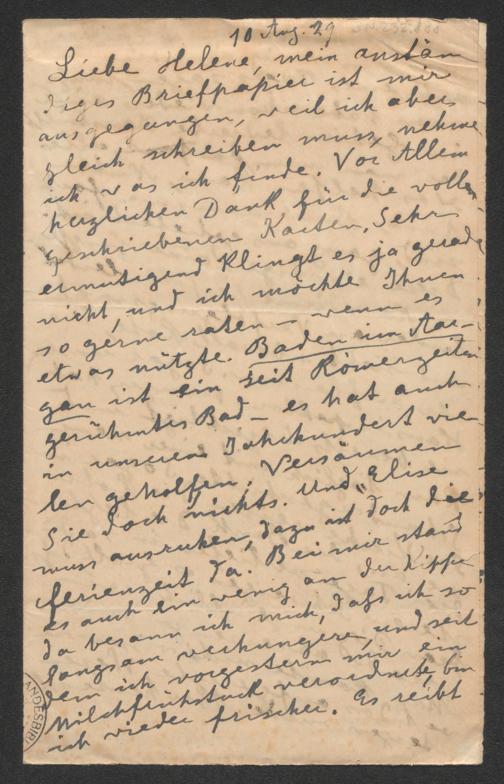 10 Aug. 29
Liebe Helene, mein anstän
diges Briefpapier ist mir
ausgegangen, weil ich aber
gleich schreiben muss, nehme
ich was ich finde. Vor Allem
herzlichen Dank für die vollen
geschriebenen Karten, Sehr
ermutigend klingt es ja gerade
nicht, und ich möchte Ihnen
so gerne raten – wenn es
etwas nützte. Baden im Aar-
gau ist ein seit Römerzeiten
gerühmtes Bad – es hat auch
in unserem Jahrhundert vie-
len geholfen. Versäumen
Sie doch nichts. Und Elise
muss ausruhen, dazu ist doch die
Ferienzeit da. Bei mir stand
es auch ein wenig an der Kippe
da besann ich mich, dass ich so
langsam verhungere, und seit
dem ich vorgestern mir ein
Milchfrühstück verordnete, bin
ich wieder frischer. Es reibt
ANDESBIBL